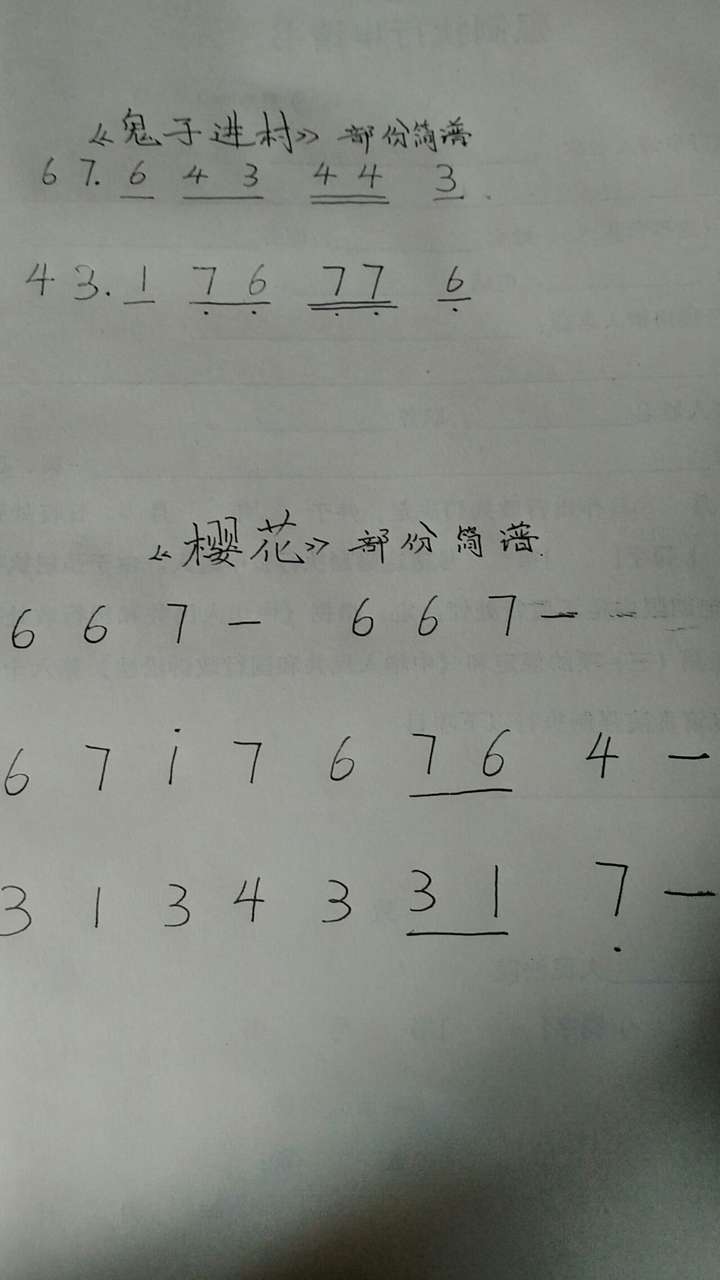 《鬼子进村》部份简谱
6 7. 6 4 3 4 4 3
4 3. 1 7 6 7 7 6
《樱花》部份简谱.
6 6 7 - 6 6 7 -
6 7 i 7 6 7 6 4 -
3 1 3 4 3 3 1 7 -